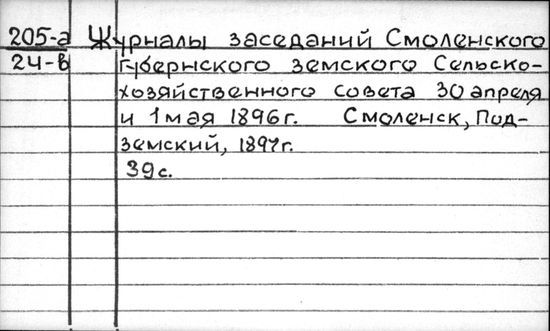 205-а Журналы заседаний Смоленского
24-в Губернского земского Сельско-
хозяйственного совета 30 апреля
и 1 мая 1896 г. Смоленск, Под-
земский, 1897г.
39 с.